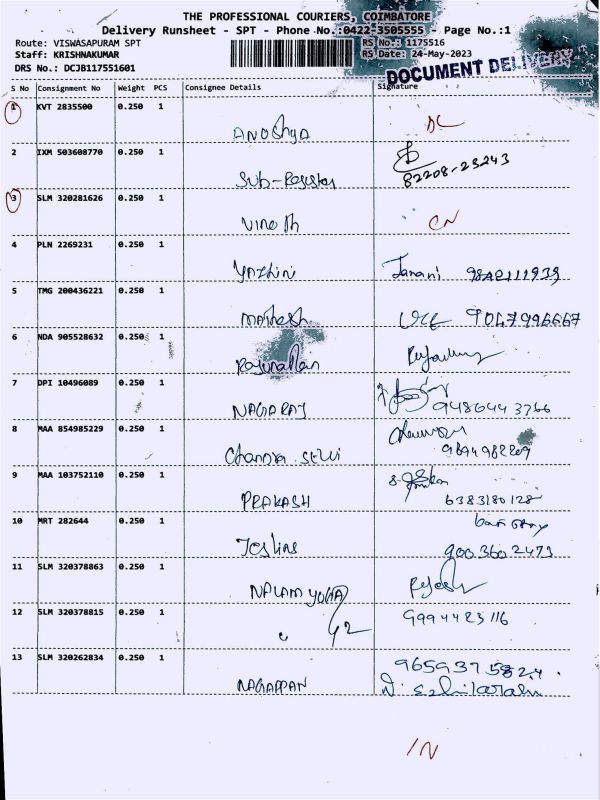 THE PROFESSIONAL COURIERS, COIMBATORE
Delivery Runsheet - SPT - Phone No.:0422-3505555 - Page No.:1
Route: VISWASAPURAM SPT
RS No.: 1175516
Staff: KRISHNAKUMAR
RS Date: 24-May-2023
DRS No.: DCJB117551601
DOCUMENT DELIVERY
S No Consignment No Weight PCS Consignee Details Signature
1 KVT 2835500 0.250 1
2 IXM 503608770 0.250 1
Sub-Register
82208-23243
3 SLM 320281626 0.250 1
Vinoth
CN
4 PLN 2269231 0.250 1
Yazhini Janani
5 TMG 200436221 0.250 1
Mahesh 9047996667
6 NDA 905528632 0.250 1
7 DPI 10496089 0.250 1
NAGARAJ 9486443766
8 MAA 854985229 0.250 1
Chandra Selvi 9894982209
9 MAA 103752110 0.250 1
PRAKASH 6383180128
10 MRT 282644 0.250 1
900 360 2473
11 SLM 320378863 0.250 1
NALAM YOGA
12 SLM 320378815 0.250 1
9994423116
13 SLM 320262834 0.250 1
9659375824
NAGAPPAN N. Ezhilarasu
IN